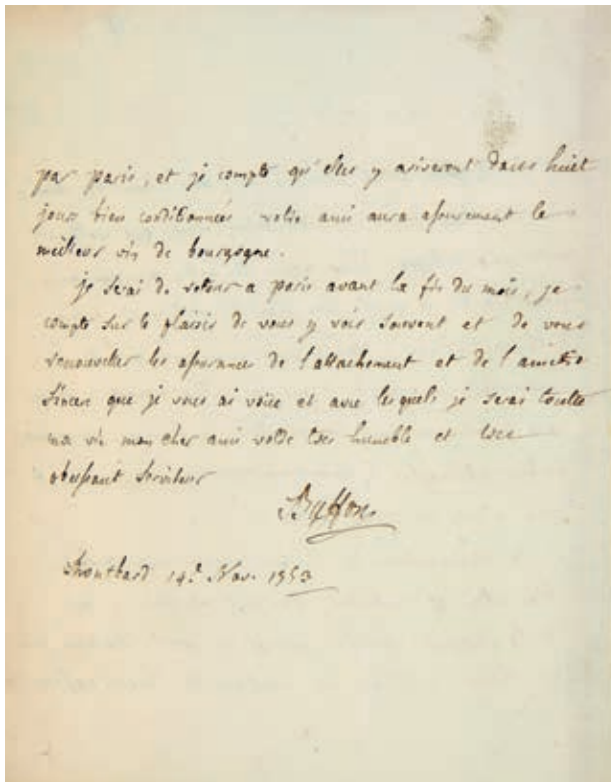 par paris, et je compte qu'elles y ariveront dans huit
jours bien conditionnées votre ami aura assurement le
meilleur vin de bourgogne.
je serai de retour a paris avant la fin du mois, je
compte sur le plaisir de vous y voir souvent et de vous
renouveller les assurances de l'attachement et de l'amitié
sincere que je vous ai voüé et avec lesquels je serai toutte
ma vie mon cher ami votre tres humble et tres
obeissant serviteur
Buffon
Montbard 14e. Nov. 1753